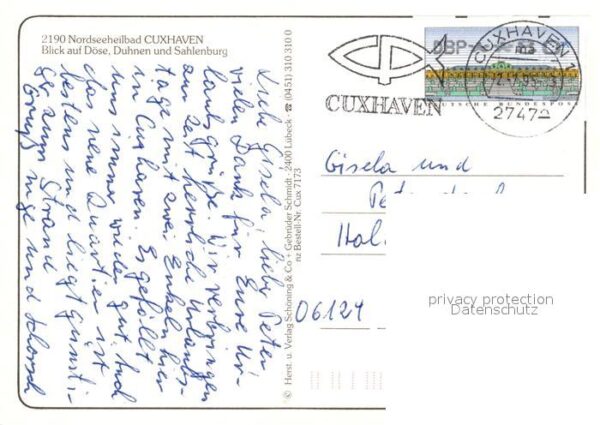 2190 Nordseeheilbad CUXHAVEN
Blick auf Döse, Duhnen und Sahlenburg
Liebe Gisela, lieber Peter
vielen Dank für Eure Ur-
laubsgrüße. Wir verbringen
zur Zeit herrliche Urlaubs-
tage mit zwei Enkeln hier
in Cuxhaven. Es gefällt
uns immer wieder gut. Auch
das neue Quartier ist
bestens und liegt günsti-
ger zum Strand
Inge und
© Herst. u. Verlag Schöning & Co + Gebrüder Schmidt · 2400 Lübeck · ☎ (0451) 310 310 0
nz Bestell-Nr. Cux 7173
DBP
DEUTSCHE BUNDESPOST
CUXHAVEN 1
27472
CUXHAVEN
Gisela und
06124
privacy protection
Datenschutz